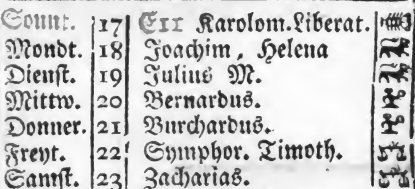 Sonnt. 17 C11 Karolom. Liberat.
Mondt. 18 Joachim, Helena
Dienst. 19 Julius M.
Mittw. 20 Bernardus.
Donner. 21 Burchardus.
Freyt. 22 Symphor. Timoth.
Samst. 23 Zacharias.